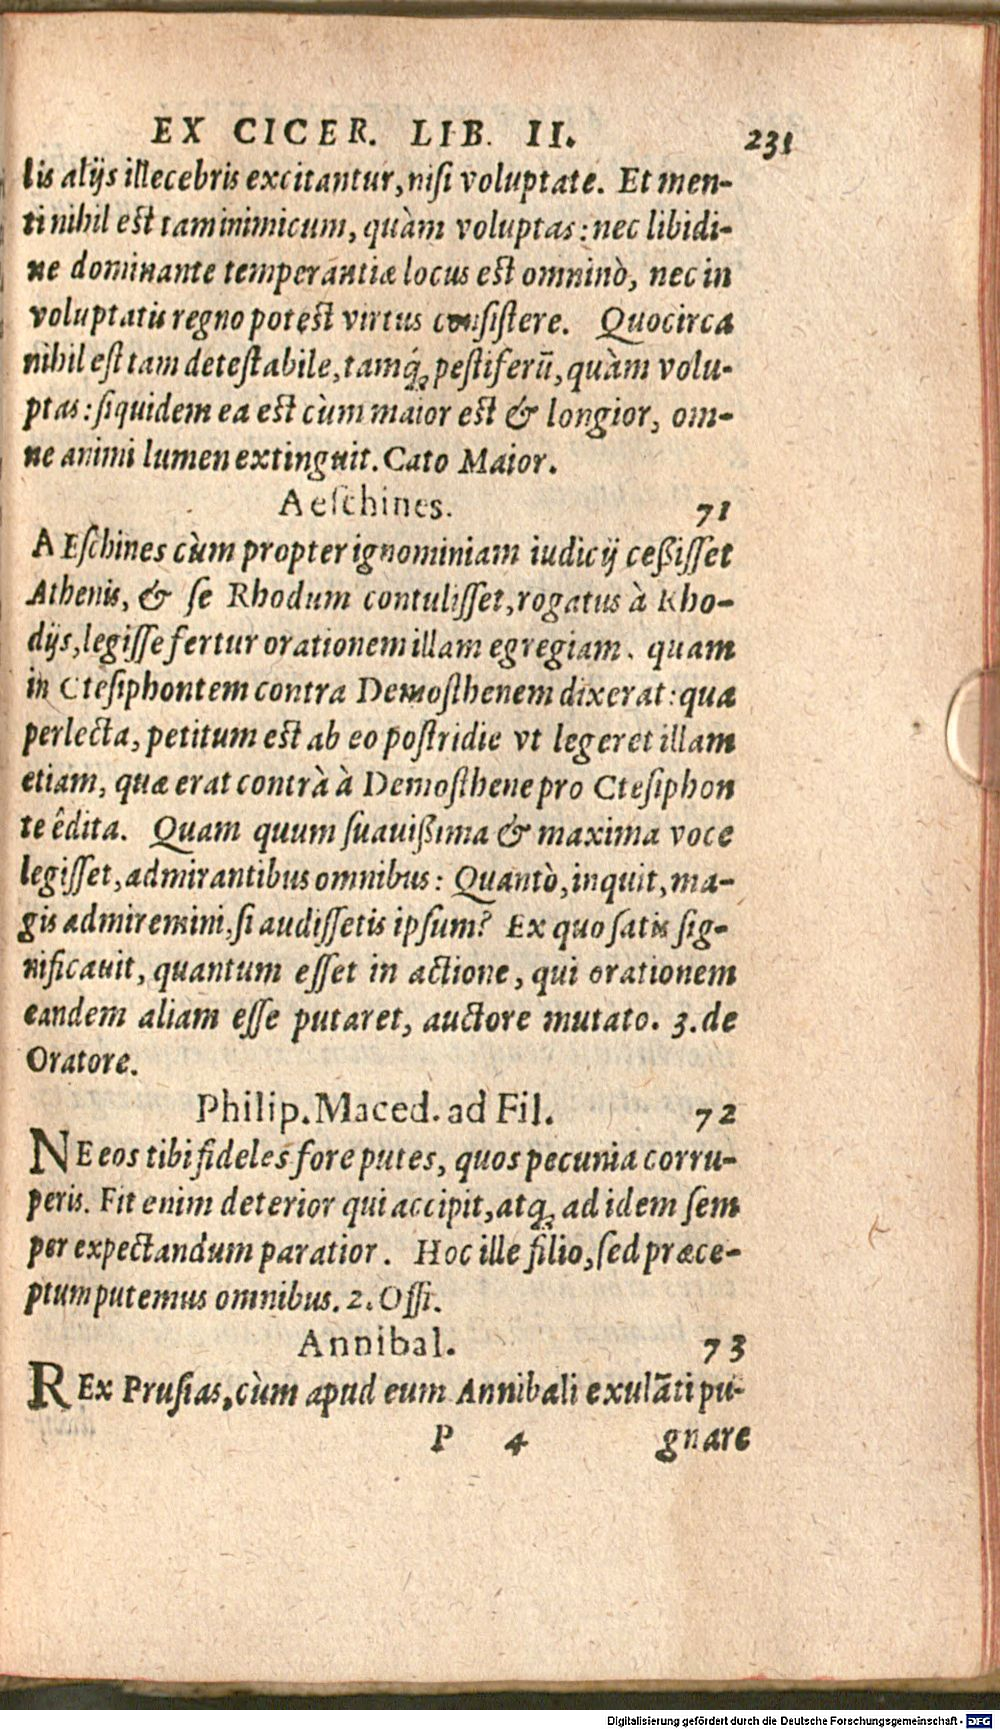 EX CICER. LIB. II. 231
lis alijs illecebris excitantur, nisi voluptate. Et men-
ti nihil est tam inimicum, quàm voluptas: nec libidi-
ne dominante temperantiæ locus est omninò, nec in
voluptatis regno potest virtus consistere. Quocirca
nihil est tam detestabile, tamq́ꝫ pestiferũ, quàm volu-
ptas: siquidem ea est cùm maior est & longior, om-
ne animi lumen extinguit. Cato Maior.
Aeschines. 71
AEschines cùm propter ignominiam iudicij cessisset
Athenis, & se Rhodum contulisset, rogatus à Rho-
dijs, legisse fertur orationem illam egregiam. quam
in Ctesiphontem contra Demosthenem dixerat: qua
perlecta, petitum est ab eo postridie vt legeret illam
etiam, quæ erat contrà à Demosthene pro Ctesiphon
te êdita. Quam quum suauissima & maxima voce
legisset, admirantibus omnibus: Quantò, inquit, ma-
gis admiremini, si audissetis ipsum? Ex quo satis sig-
nificauit, quantum esset in actione, qui orationem
eandem aliam esse putaret, auctore mutato. 3. de
Oratore.
Philip. Maced. ad Fil. 72
NE eos tibi fideles fore putes, quos pecunia corru-
peris. Fit enim deterior qui accipit, atqꝫ ad idem sem
per expectandum paratior. Hoc ille filio, sed præce-
ptum putemus omnibus. 2. Offi.
Annibal. 73
REx Prusias, cùm apud eum Annibali exulãti pu-
P 4 gnare
Digitalisierung gefördert durch die Deutsche Forschungsgemeinschaft - DFG